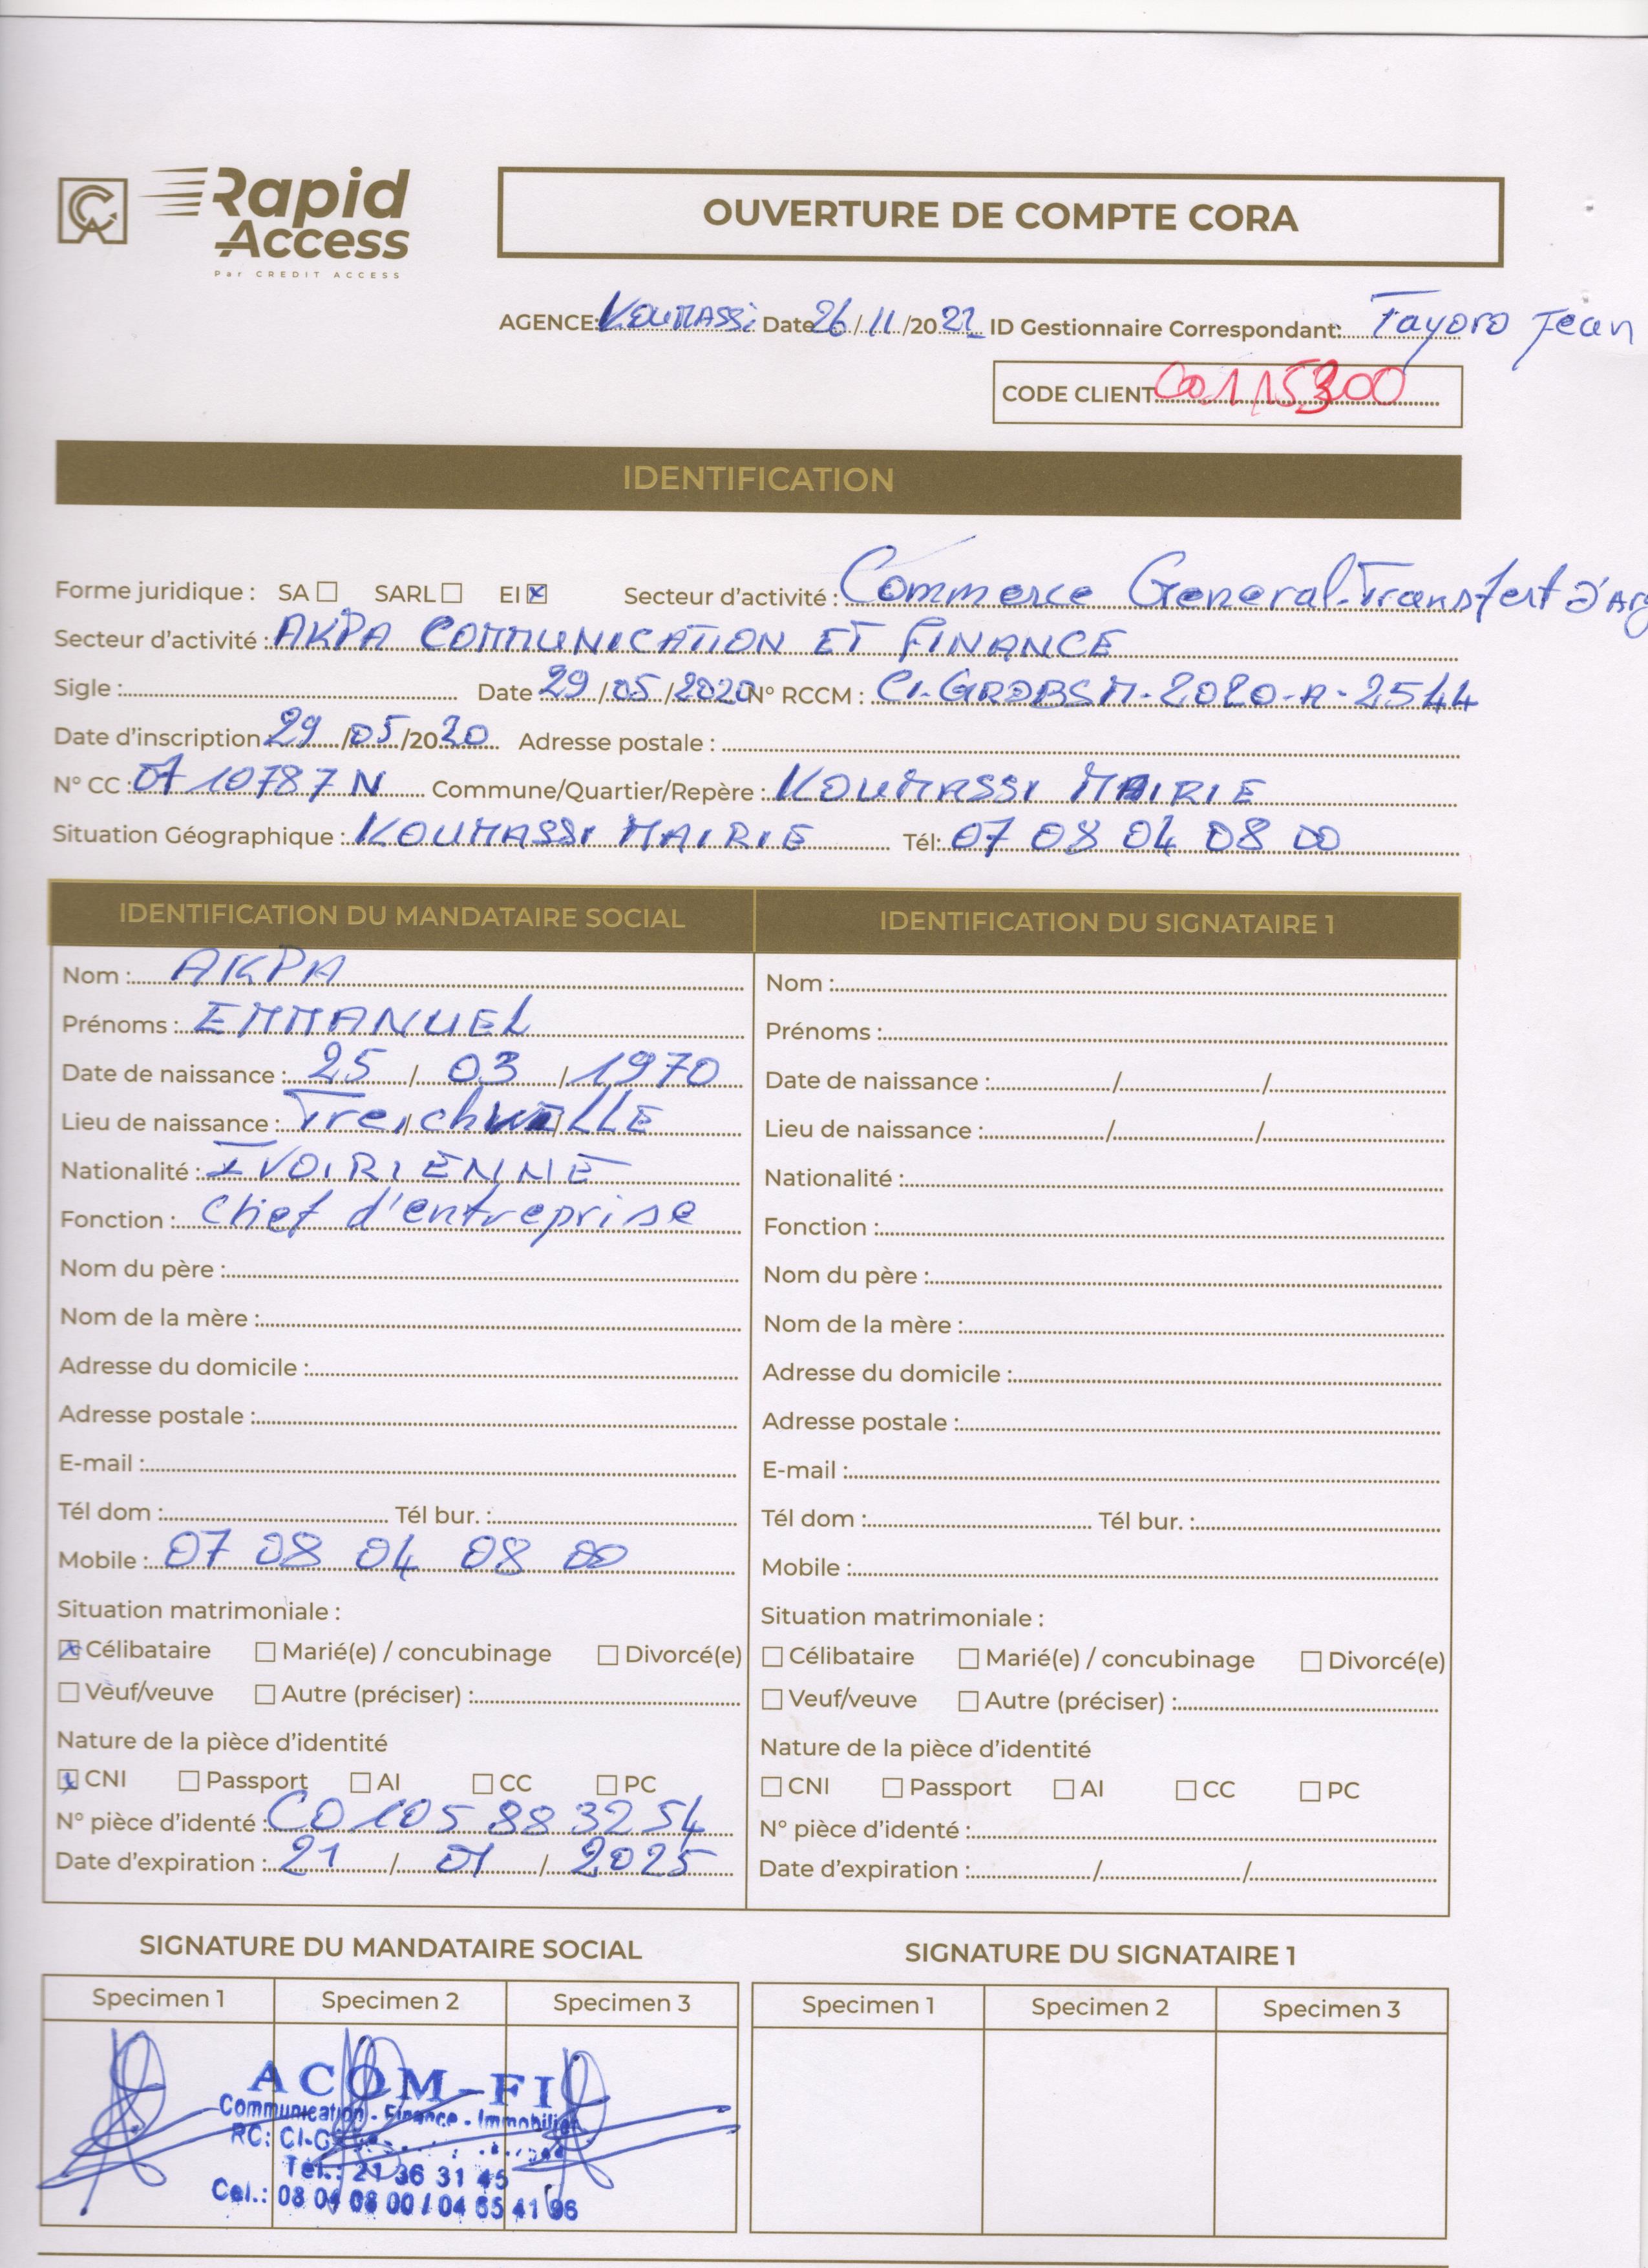 CA Rapid Access
Par CREDIT ACCESS
OUVERTURE DE COMPTE CORA
AGENCE: KOUMASSI Date 26/11/2021 ID Gestionnaire Correspondant: Tayoro Jean
CODE CLIENT C0115300
IDENTIFICATION
Forme juridique : SA ☐ SARL ☐ EI ☒ Secteur d'activité : Commerce General-Transfert d'Arg
Secteur d'activité : AKPA COMMUNICATION ET FINANCE
Sigle : Date 29/05/2020 N° RCCM : CI-GRDBSM-2020-A-2544
Date d'inscription 29/05/2020 Adresse postale :
N° CC : 0710787 N Commune/Quartier/Repère : KOUMASSI MAIRIE
Situation Géographique : KOUMASSI MAIRIE Tél: 07 08 04 08 00
IDENTIFICATION DU MANDATAIRE SOCIAL
Nom : AKPA
Prénoms : EMMANUEL
Date de naissance : 25 / 03 / 1970
Lieu de naissance : TreichvilLLE
Nationalité : IVOIRIENNE
Fonction : Chef d'entreprise
Nom du père :
Nom de la mère :
Adresse du domicile :
Adresse postale :
E-mail :
Tél dom : Tél bur. :
Mobile : 07 08 04 08 00
Situation matrimoniale :
☒ Célibataire ☐ Marié(e) / concubinage ☐ Divorcé(e)
☐ Veuf/veuve ☐ Autre (préciser) :
Nature de la pièce d'identité
☒ CNI ☐ Passport ☐ AI ☐ CC ☐ PC
N° pièce d'identé : C0 105 88 32 54
Date d'expiration : 21 / 01 / 2025
IDENTIFICATION DU SIGNATAIRE 1
Nom :
Prénoms :
Date de naissance : / /
Lieu de naissance : / /
Nationalité :
Fonction :
Nom du père :
Nom de la mère :
Adresse du domicile :
Adresse postale :
E-mail :
Tél dom : Tél bur. :
Mobile :
Situation matrimoniale :
☐ Célibataire ☐ Marié(e) / concubinage ☐ Divorcé(e)
☐ Veuf/veuve ☐ Autre (préciser) :
Nature de la pièce d'identité
☐ CNI ☐ Passport ☐ AI ☐ CC ☐ PC
N° pièce d'identé :
Date d'expiration : / /
SIGNATURE DU MANDATAIRE SOCIAL
Specimen 1 Specimen 2 Specimen 3
ACOM-FI
Communication - Finance - Immobilier
RC: CI-
Tél.: 21 36 31 45
Cel.: 08 04 08 00 / 04 65 41 96
SIGNATURE DU SIGNATAIRE 1
Specimen 1 Specimen 2 Specimen 3